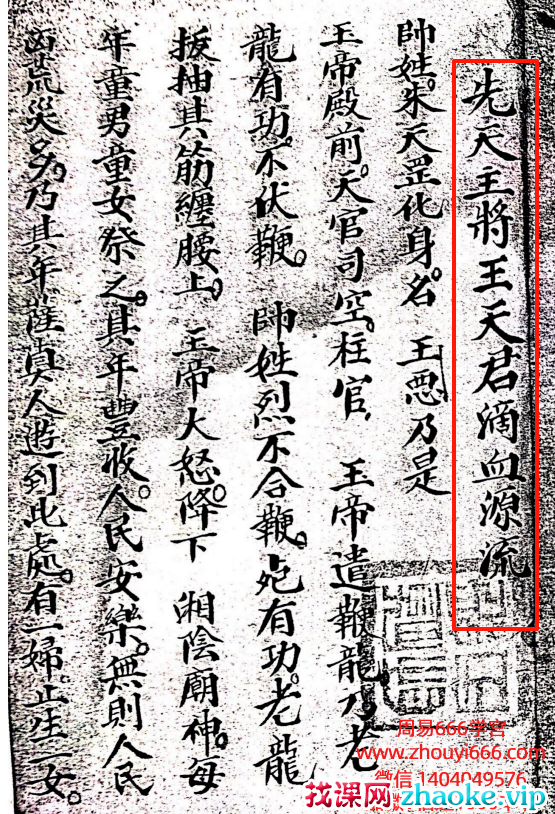 先天王將王天君滴血源流
帥姓。朱天罡化身名　王惡乃是
玉帝殿前。天官司空。柱官　玉帝遣鞭龍乃老
龍有功。不伏鞭。　帥姓烈不合鞭。他有功。老龍
扳抽其筋纏腰上。　玉帝大怒。降下　湘陰廟神。每
年童男童女祭之。其年豐收。人民安樂。無則人民
凶荒災多。乃其年薩真人遊到此處。有一婦。止生一女。
周易666学宫
www.zhouyi666.com
微信1404049576
找课网zhaoke.vip